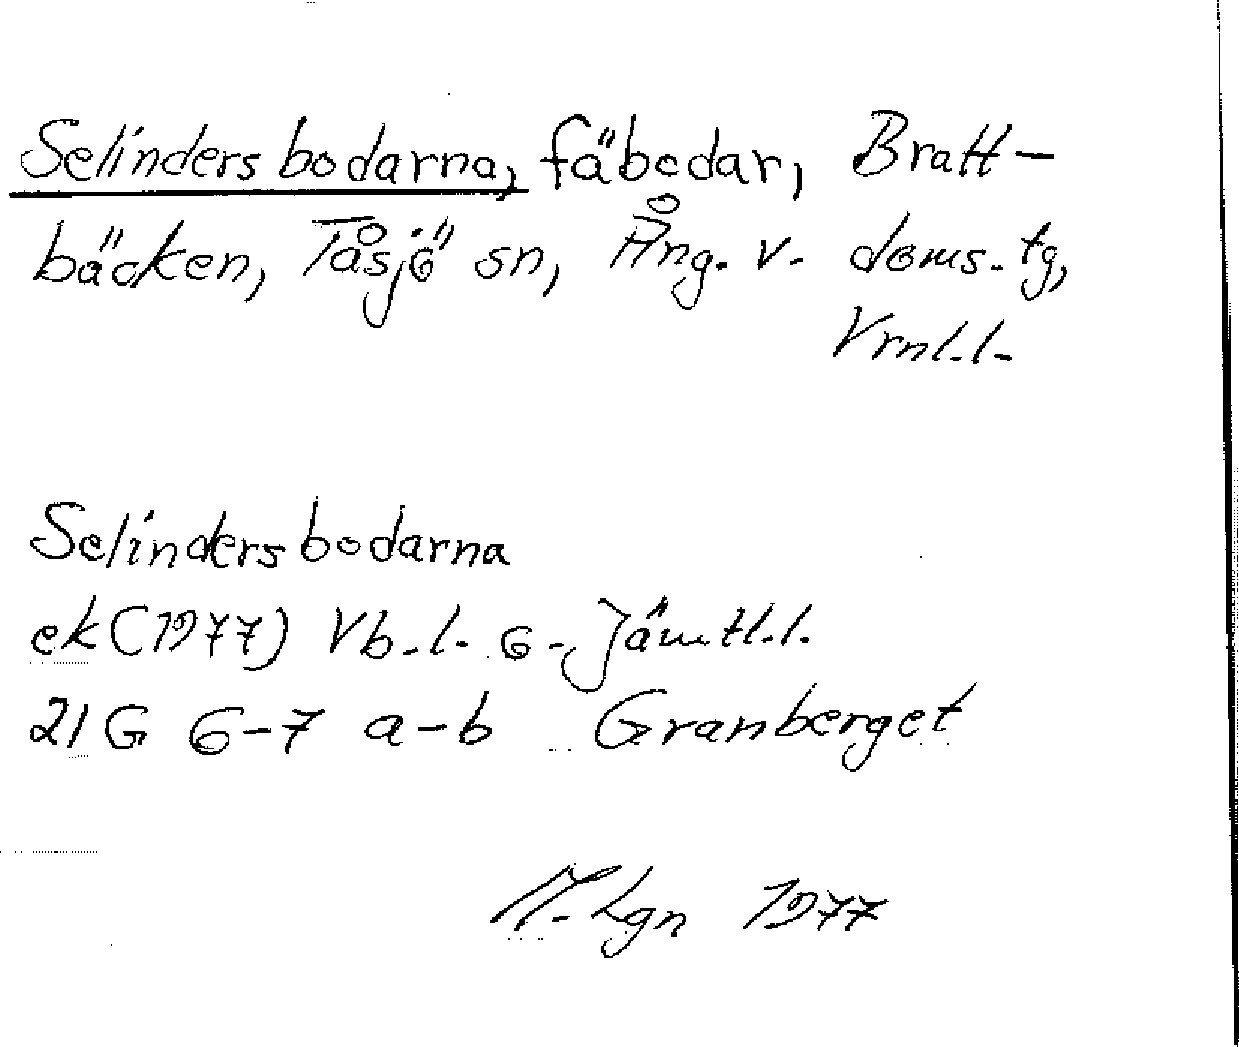 Selindersbodarna, fäbodar, Bratt-
bäcken, Tåsjö sn, Ång. v. doms. tg,
Vrnl.l.
Selindersbodarna
ek (1977) Vb.l. o. Jämtl.l.
21 G 6-7 a-b Granberget
M. Lgn 1977